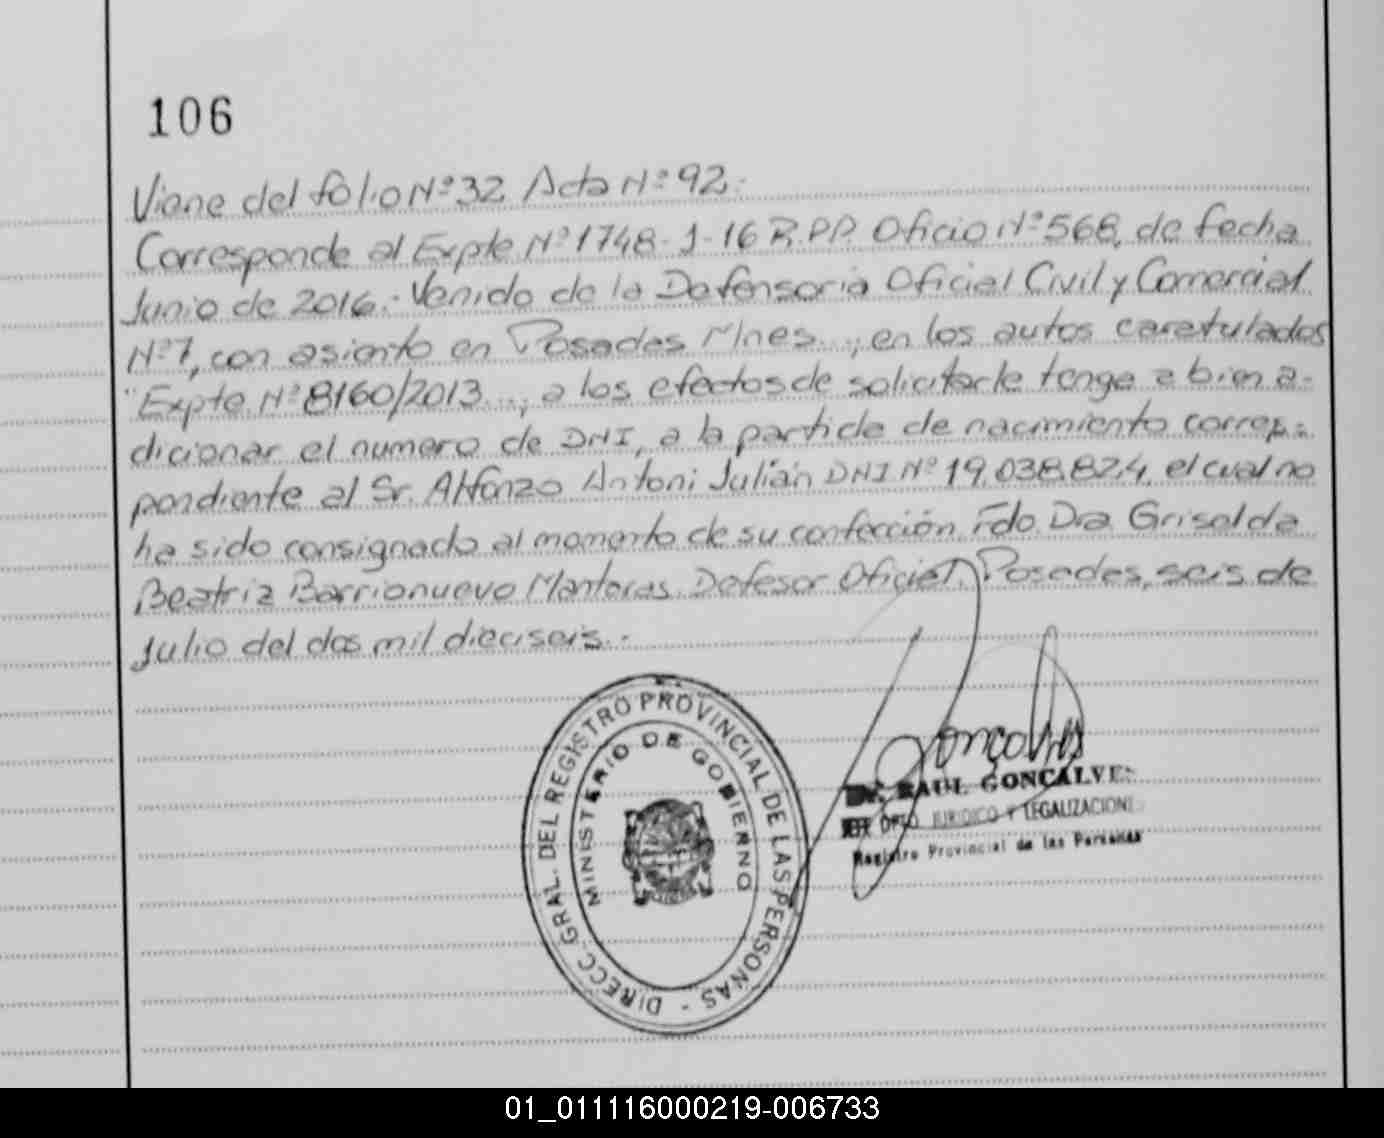 106
Viene del folio Nº 32 Acta Nº 92.
Corresponde al Expte. Nº 1748-J-16 R.P.P. Oficio Nº 568, de fecha
Junio de 2016. Venido de la Defensoria Oficial Civil y Comercial
Nº 7, con asiento en Posadas Mnes..., en los autos caratulados
"Expte. Nº 8160/2013..., a los efectos de solicitarle tenga a bien a-
dicionar el numero de DNI, a la partida de nacimiento corres-
pondiente al Sr. Alfonzo Antoni Julián DNI Nº 19.038.824, el cual no
ha sido consignado al momento de su confección. Fdo. Dra Griselda
Beatriz Barrionuevo Mantaras. Defesor Oficial. Posadas, seis de
Julio del dos mil dieciseis.-
DIRECC. GRAL. DEL REGISTRO PROVINCIAL DE LAS PERSONAS -
MINISTERIO DE GOBIERNO
Goncalves
Dr. RAUL GONCALVES
DPTO JURIDICO Y LEGALIZACIONE
Registro Provincial de las Personas
01_011116000219-006733